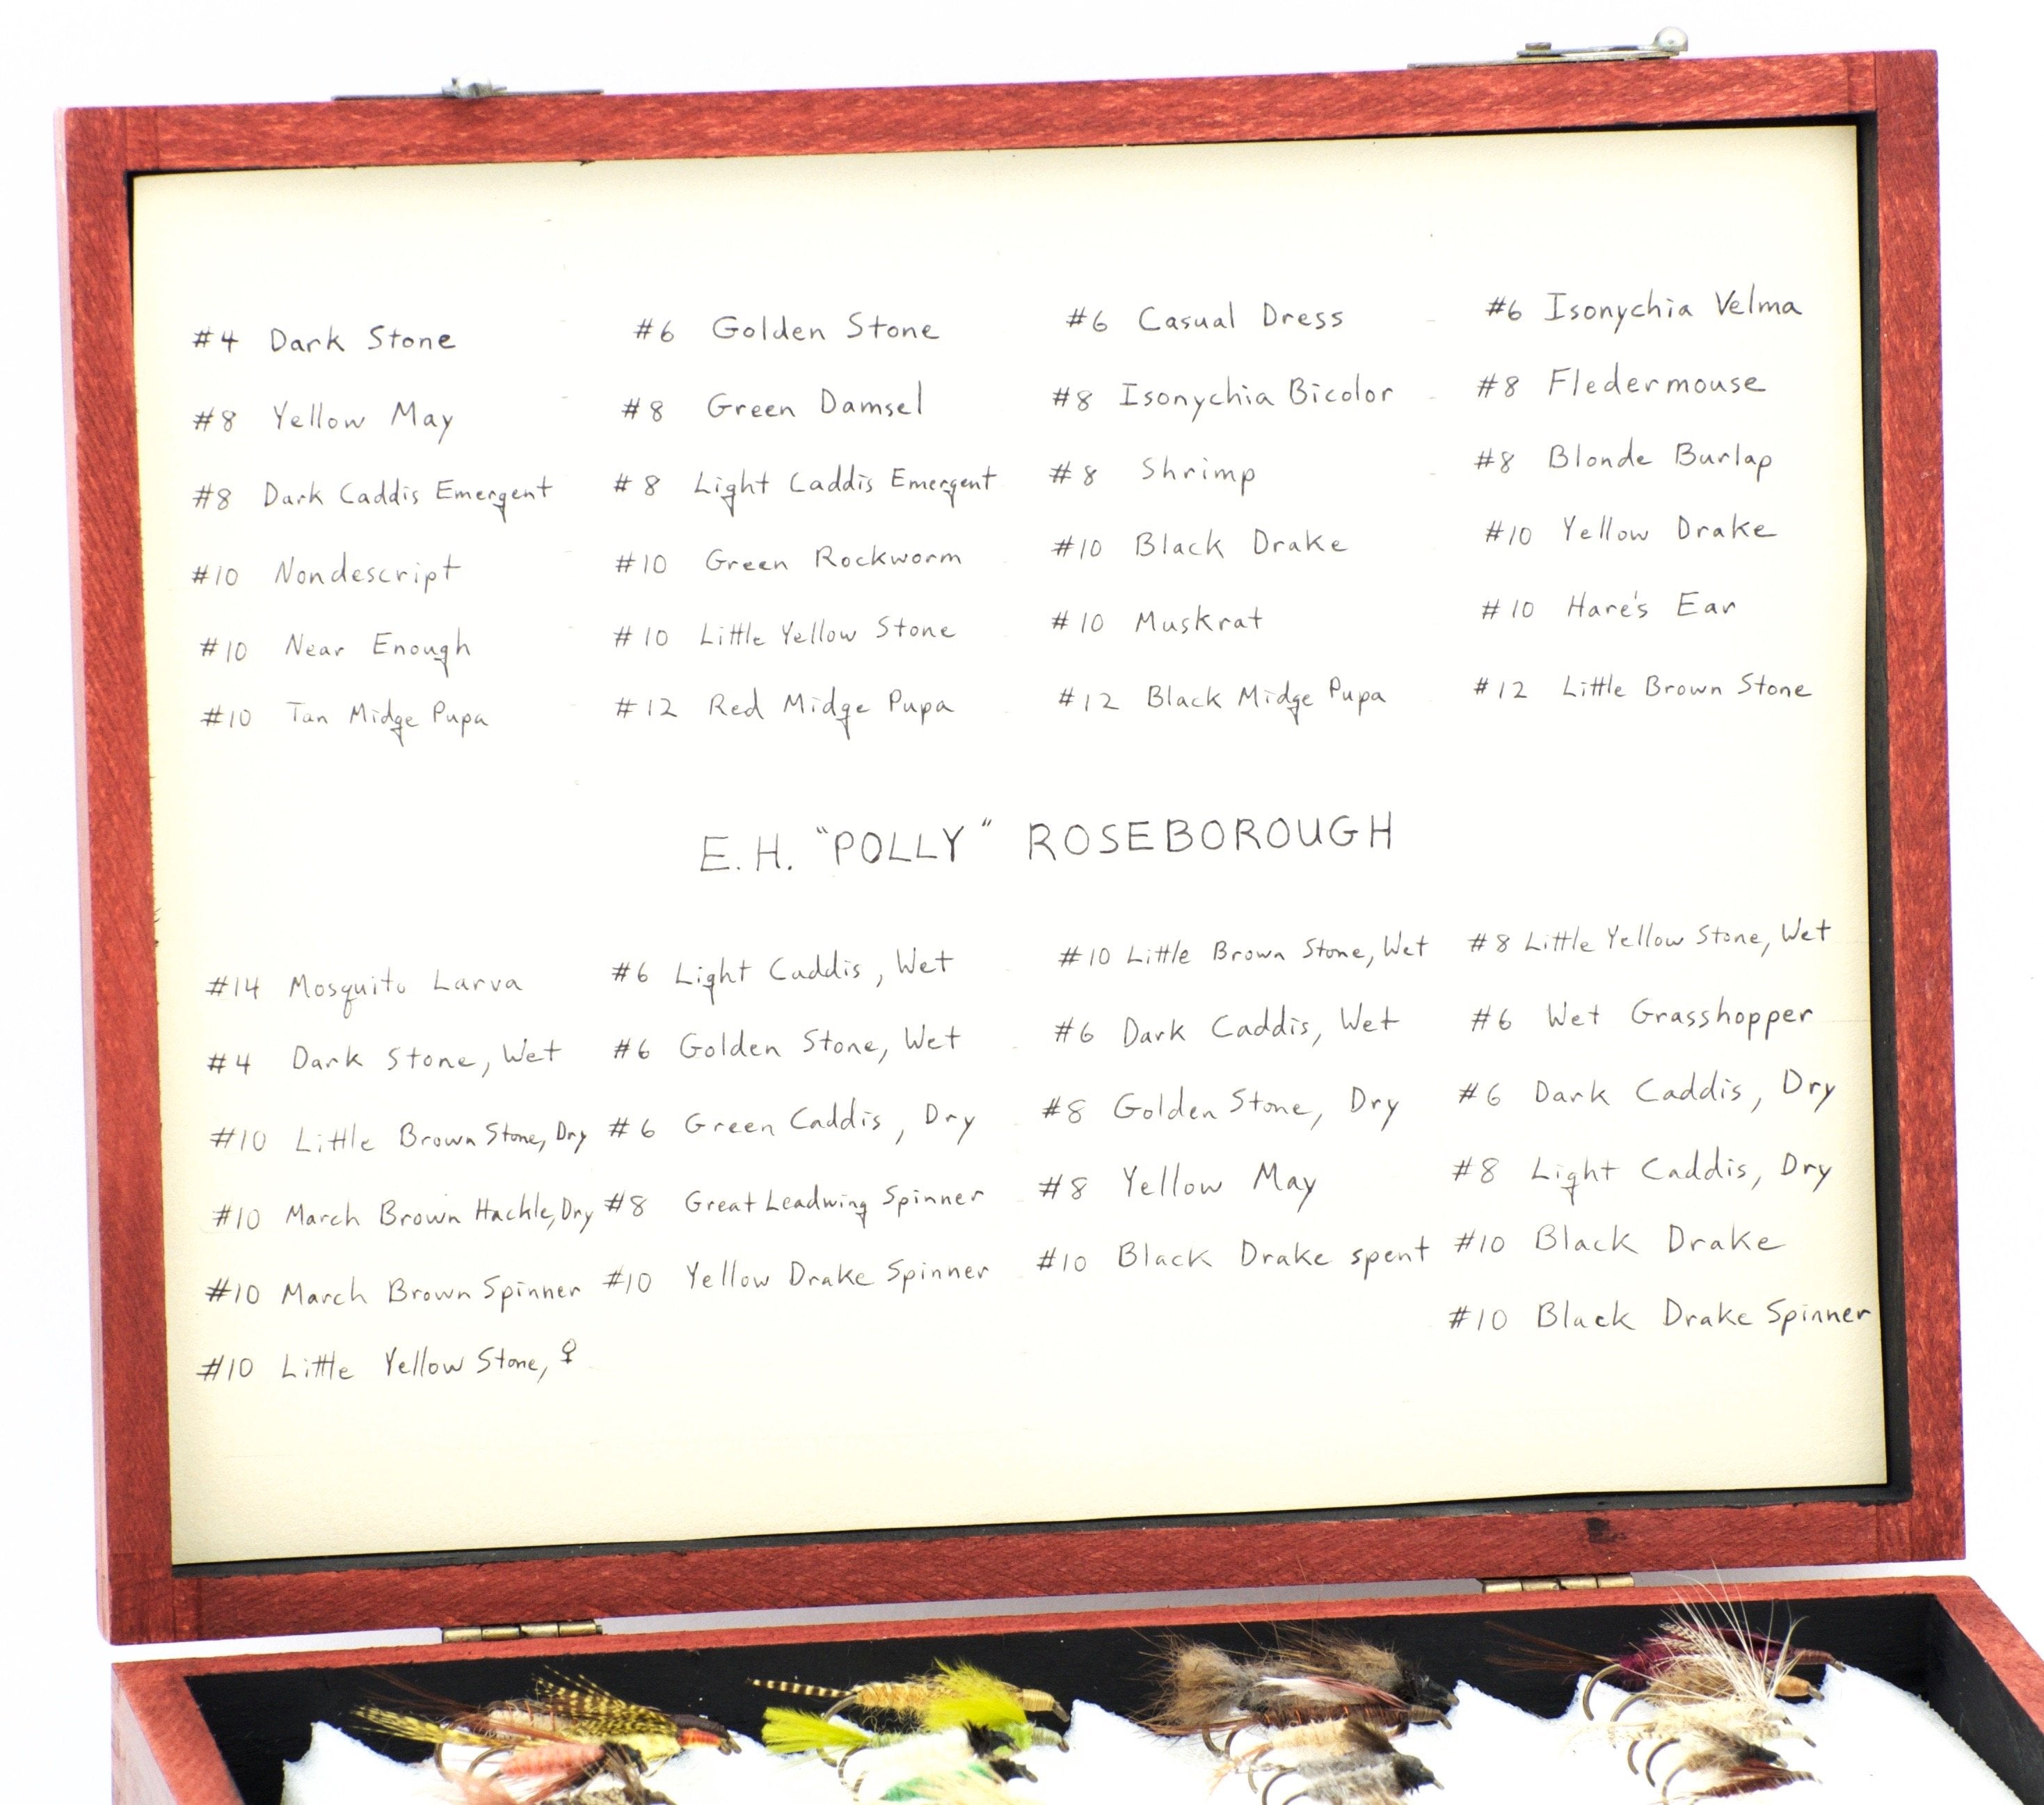 #4 Dark Stone #6 Golden Stone #6 Casual Dress #6 Isonychia Velma
#8 Yellow May #8 Green Damsel #8 Isonychia Bicolor #8 Fledermouse
#8 Dark Caddis Emergent #8 Light Caddis Emergent #8 Shrimp #8 Blonde Burlap
#10 Nondescript #10 Green Rockworm #10 Black Drake #10 Yellow Drake
#10 Near Enough #10 Little Yellow Stone #10 Muskrat #10 Hare's Ear
#10 Tan Midge Pupa #12 Red Midge Pupa #12 Black Midge Pupa #12 Little Brown Stone
E.H. "POLLY" ROSEBOROUGH
#14 Mosquito Larva #6 Light Caddis, Wet #10 Little Brown Stone, Wet #8 Little Yellow Stone, Wet
#4 Dark Stone, Wet #6 Golden Stone, Wet #6 Dark Caddis, Wet #6 Wet Grasshopper
#10 Little Brown Stone, Dry #6 Green Caddis, Dry #8 Golden Stone, Dry #6 Dark Caddis, Dry
#10 March Brown Hackle, Dry #8 Great Leadwing Spinner #8 Yellow May #8 Light Caddis, Dry
#10 March Brown Spinner #10 Yellow Drake Spinner #10 Black Drake spent #10 Black Drake
#10 Little Yellow Stone, ♀ #10 Black Drake Spinner